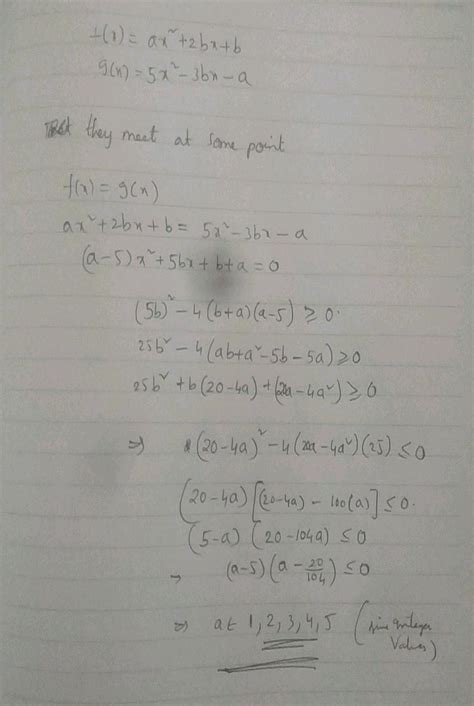 f(x) = ax² + 2bx + b
g(x) = 5x² - 3bx - a
they meet at some point
f(x) = g(x)
ax² + 2bx + b = 5x² - 3bx - a
(a-5)x² + 5bx + b+a = 0
(5b)² - 4(b+a)(a-5) ≥ 0.
25b² - 4(ab+a²-5b-5a) ≥ 0
25b² + b(20-4a) + (20a-4a²) ≥ 0
⇒ (20-4a)² - 4(20a-4a²)(25) ≤ 0
(20-4a) [(20-4a) - 100(a)] ≤ 0.
(5-a) (20-104a) ≤ 0
→ (a-5)(a - 20/104) ≤ 0
⇒ a ∈ 1, 2, 3, 4, 5 (since integer
values)